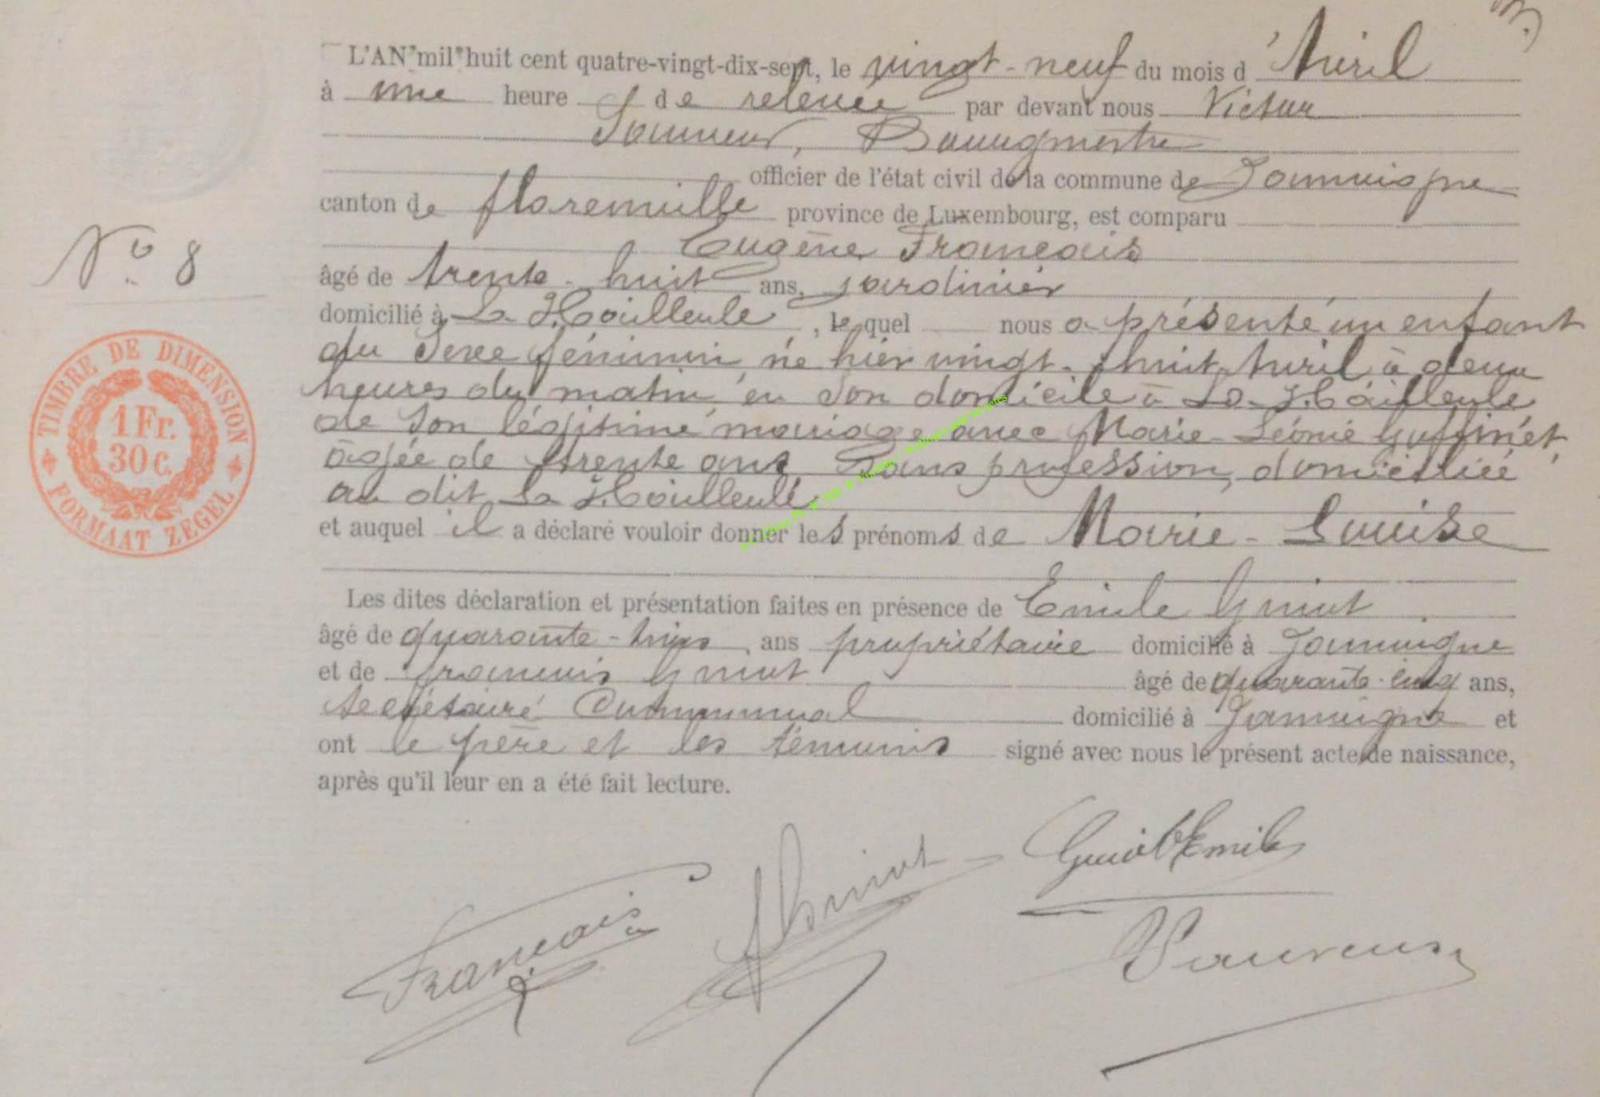 L'AN mil huit cent quatre-vingt-dix-sept, le vingt-neuf du mois d'Avril
à une heure de relevée par devant nous Victor
Bourgmestre
officier de l'état civil de la commune de Jamoigne
canton de florenville province de Luxembourg, est comparu
Eugène François
âgé de trente-huit ans, jardinier
domicilié à La Hailleule, lequel nous a présenté un enfant
du sexe féminin, né hier vingt-huit Avril à deux
heures du matin, en son domicile à La Hailleule
de son légitime mariage avec Marie-Léonie
âgée de trente ans, sans profession, domiciliée
au dit La Hailleule
et auquel il a déclaré vouloir donner les prénoms de Marie-Louise
Les dites déclaration et présentation faites en présence de Emile Guiot
âgé de quarante-trois ans propriétaire domicilié à Jamoigne
et de françois Guiot âgé de quarante-cinq ans,
secrétaire Communal domicilié à Jamoigne et
ont le père et les témoins signé avec nous le présent acte de naissance,
après qu'il leur en a été fait lecture.
No. 8
TIMBRE DE DIMENSION
1 Fr.
30 C.
FORMAAT ZEGEL
Guiot Emile
François